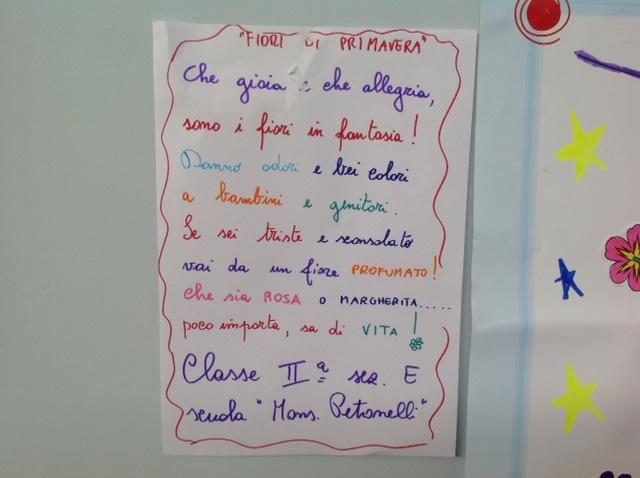 "FIORI DI PRIMAVERA"
Che gioia e che allegria,
sono i fiori in fantasia!
Danno odori e bei colori
a bambini e genitori.
Se sei triste e sconsolato
vai da un fiore PROFUMATO!
che sia ROSA o MARGHERITA.....
poco importa, sa di VITA!
Classe IIª sez. E
scuola "Mons. Petronelli"